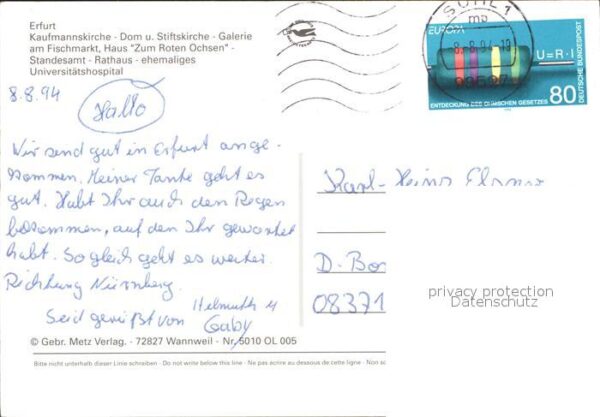 Erfurt
Kaufmannskirche - Dom u. Stiftskirche - Galerie
am Fischmarkt, Haus "Zum Roten Ochsen" -
Standesamt - Rathaus - ehemaliges
Universitätshospital
SUHL 1
mb
8.-8.94-18
EUROPA
U=R·I
DEUTSCHE BUNDESPOST
ENTDECKUNG DES OHMSCHEN GESETZES
80
8.8.94
Hallo
Wir send gut in Erfurt ange-
kommen. Meiner Tante geht es
gut. Habt Ihr auch den Regen
bekommen, auf den Ihr gewartet
habt. So gleich geht es weiter
Richtung Nürnberg.
Seid gegrüßt von Helmuth u
Gaby
Karl-Heinz
D.
08371
privacy protection
Datenschutz
© Gebr. Metz Verlag. - 72827 Wannweil - Nr. 5010 OL 005
Bitte nicht unter dieser Linie schreiben - Do not write below this line - Ne pas écrire au dessous de cette ligne - Non